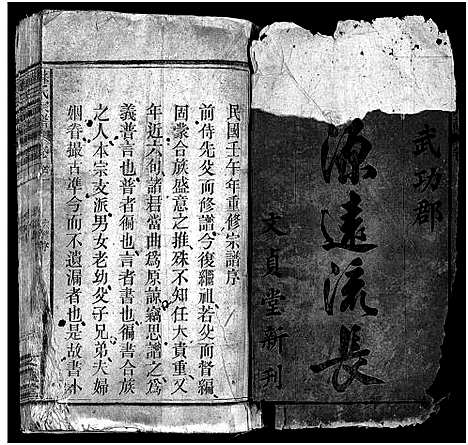 武功郡
源遠流長
文貞堂新刊
民國壬午年重修宗譜序
前侍先父而修譜今後繼祖若父而督編
固蒙合族盛意之推殊不知任大責重又
年近六旬諸君當曲為原諒竊思譜之為
義普言也普者徧也言者書也徧書合族
之人本宗支派男女老幼父子兄弟夫婦
姻眷撮古準今而不遺漏者也是故書不